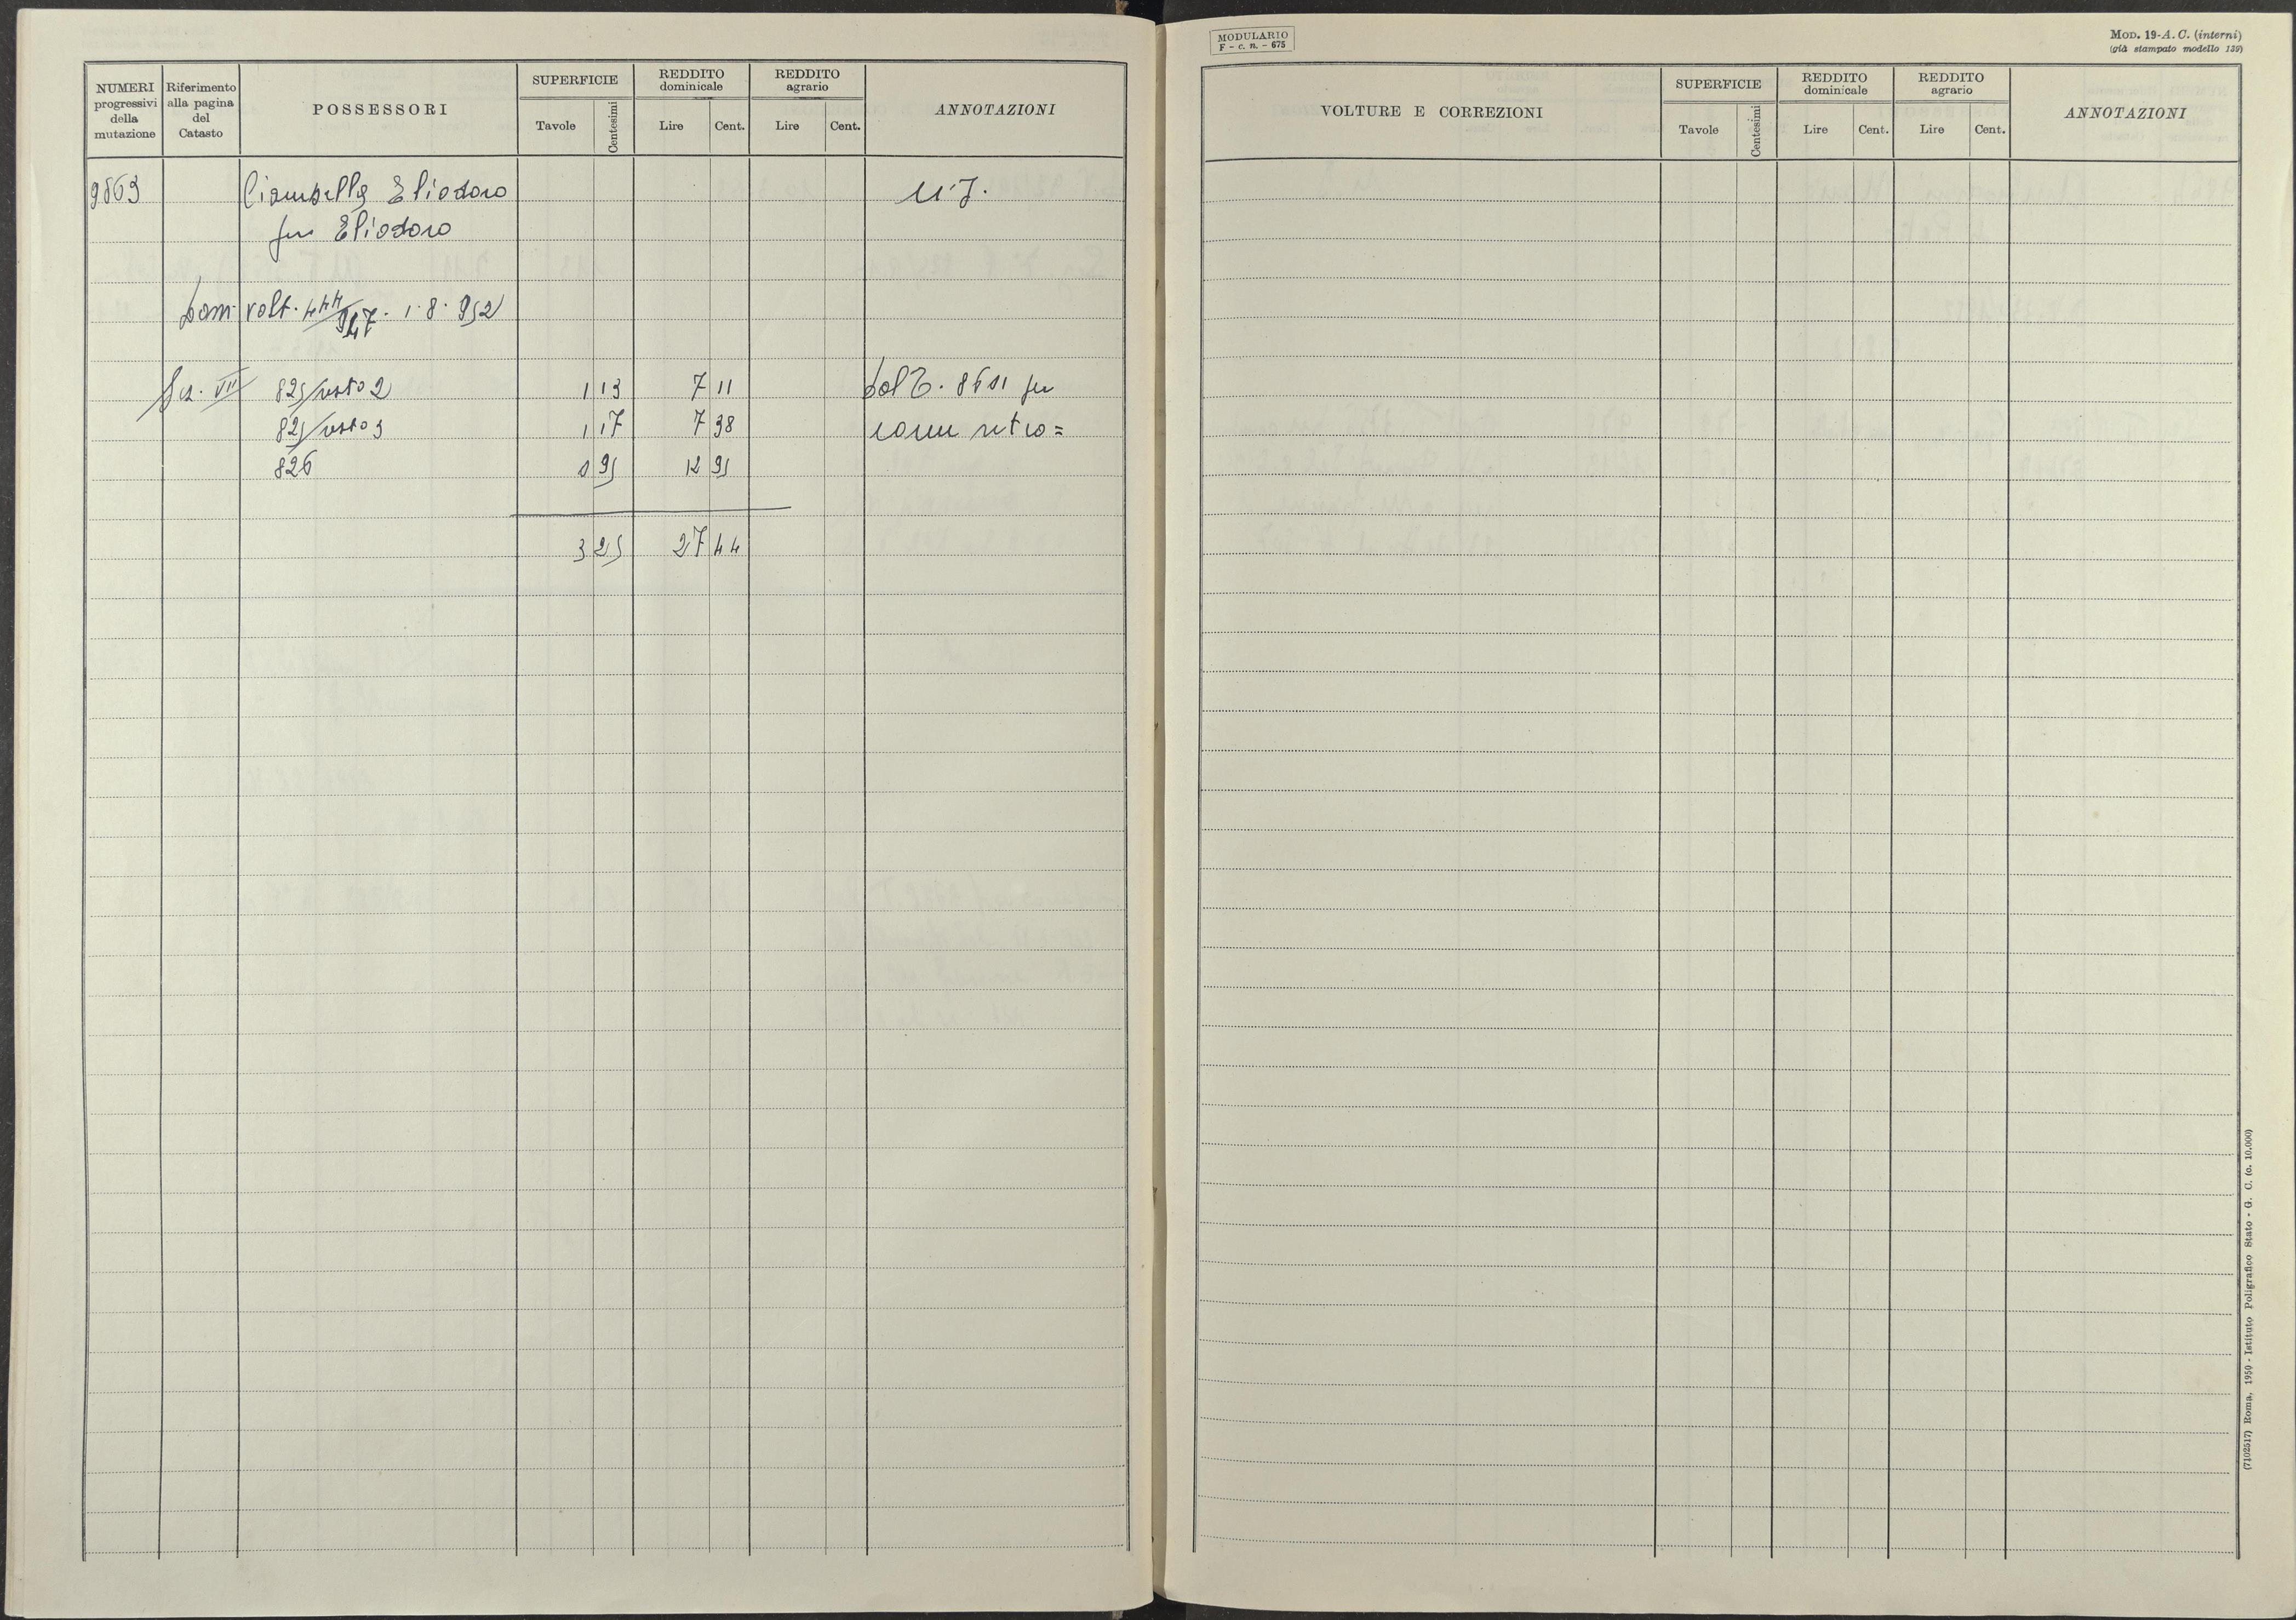 NUMERI progressivi della mutazione | Riferimento alla pagina del Catasto | POSSESSORI | SUPERFICIE Tavole Centesimi | REDDITO dominicale Lire Cent. | REDDITO agrario Lire Cent. | ANNOTAZIONI
9863 Ciambella Eliodoro
fu Eliodoro
Dom. volt. 444/947. 1.8.952
Sez. VII 825/resto 2 1 13 7 11 dal
825/resto 3 1 17 7 38 retro=
826 0 95 12 95
3 25 27 44
MODULARIO
F - c. n. - 675
MOD. 19-A. C. (interni)
(già stampato modello 139)
VOLTURE E CORREZIONI | SUPERFICIE Tavole Centesimi | REDDITO dominicale Lire Cent. | REDDITO agrario Lire Cent. | ANNOTAZIONI
(7102517) Roma, 1950 - Istituto Poligrafico Stato - G. C. (c. 10.000)